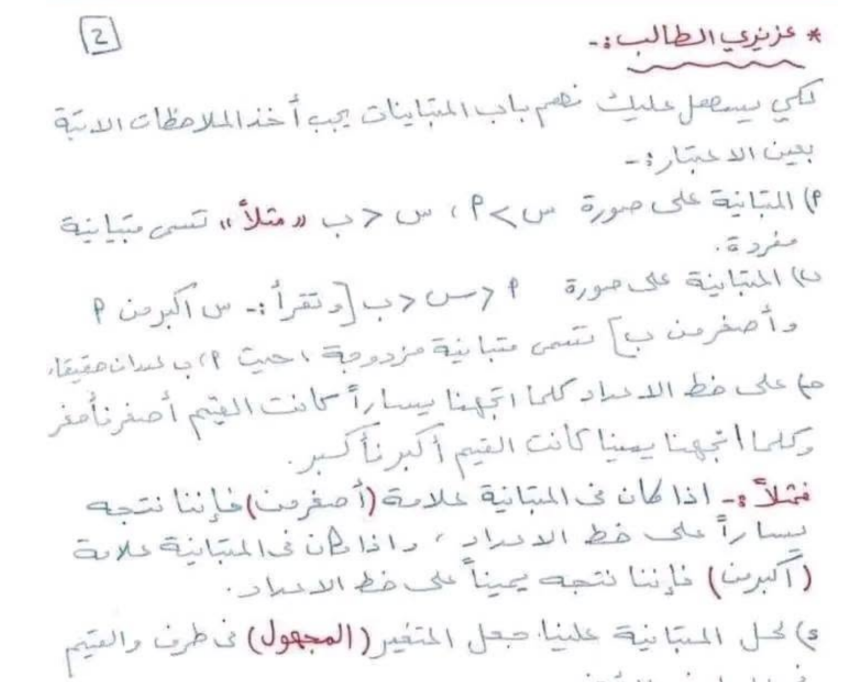 2
* عزيزي الطالب :-
لكي يسهل عليك فهم باب المتباينات يجب أخذ الملاحظات الاتية
بعين الاعتبار :-
أ) المتباينة على صورة س > أ ، س < ب « مثلاً » تسمى متباينة
مفردة .
ب) المتباينة على صورة أ < س < ب [ وتقرأ :- س أكبر من أ
وأصغر من ب ] تسمى متباينة مزدوجة ، حيث أ ، ب عددان حقيقيان
جـ) على خط الاعداد كلما اتجهنا يساراً كانت القيم أصغر فأصغر
وكلما اتجهنا يمينا كانت القيم أكبر فأكبر .
فمثلاً :- اذا كان في المتباينة علامة (أصغر من) فإننا نتجه
يساراً على خط الاعداد ، واذا كان في المتباينة علامة
(أكبر من) فإننا نتجه يميناً على خط الاعداد .
د) لحل المتباينة علينا جعل المتغير (المجهول) في طرف والقيم